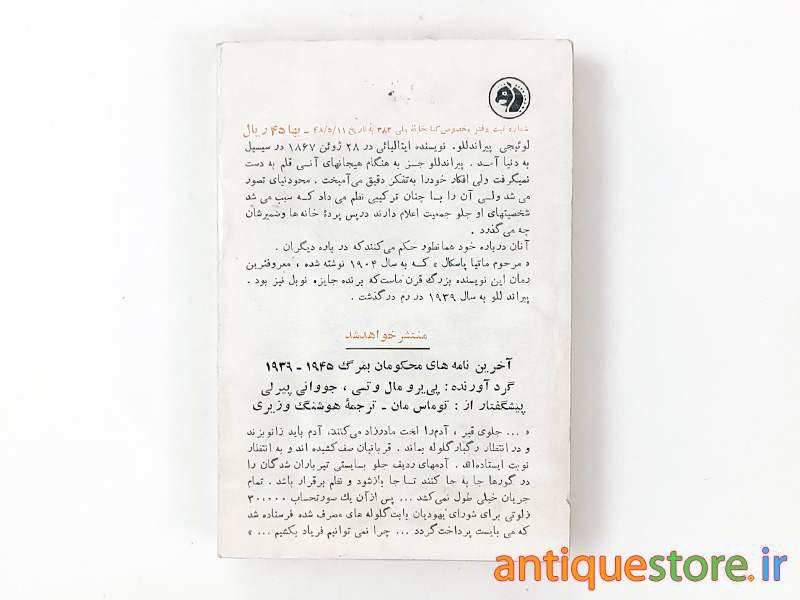 شماره ثبت دفتر مخصوص کتابخانهٔ ملی ۳۸۲ به تاریخ ۴۸/۵/۱۱ - بها ۴۵ ریال
لوئیجی پیراندللو. نویسنده ایتالیائی در ۲۸ ژوئن ۱۸۶۷ در سیسیل
به دنیا آمد . پیراندللو جز به هنگام هیجانهای آنی قلم به دست
نمیگرفت ولی افکار خودرا به‌تفکر دقیق می‌آمیخت . محودنیای تصور
می شد ولی آن را با چنان ترکیبی نظم می داد که سبب می شد
شخصیتهای او جلو جمعیت اعلام دارند درپس پردهٔ خانه ها وضمیرشان
چه می‌گذرد .
آنان درباره خود همانطور حکم می‌کنند که در باره دیگران .
« مرحوم ماتیا پاسکال » که به سال ۱۹۰۴ نوشته شده ، معروفترین
رمان این نویسنده بزرگ قرن ماست که برنده جایزه نوبل نیز بود .
پیراند للو به سال ۱۹۳۹ در رم درگذشت .
منتشر خواهد شد
آخرین نامه های محکومان بمرگ ۱۹۴۵ - ۱۹۳۹
گرد آورنده : پی‌یرو مال وتسی ، جووانی پیرلی
پیشگفتار از : توماس مان - ترجمهٔ هوشنگ وزیری
« ... جلوی قبر ، آدم را لخت مادرزاد می‌کنند، آدم باید زانو بزند
و در انتظار رگبار گلوله بماند . قربانیان صف کشیده اند و به انتظار
نوبت ایستاده‌اند . آدمهای ردیف جلو بایستی تیرباران شدگان را
در گورها جا به جا کنند تا جا بازشود و نظم برقرار باشد . تمام
جریان خیلی طول نمی‌کشد ... پس از آن یك صورتحساب ۳۰,۰۰۰
زلوتی برای شورای یهودیان بابت گلوله های مصرف شده فرستاده شد
که می بایست پرداخت گردد ... چرا نمی توانیم فریاد بکشیم ... »
antiquestore.ir